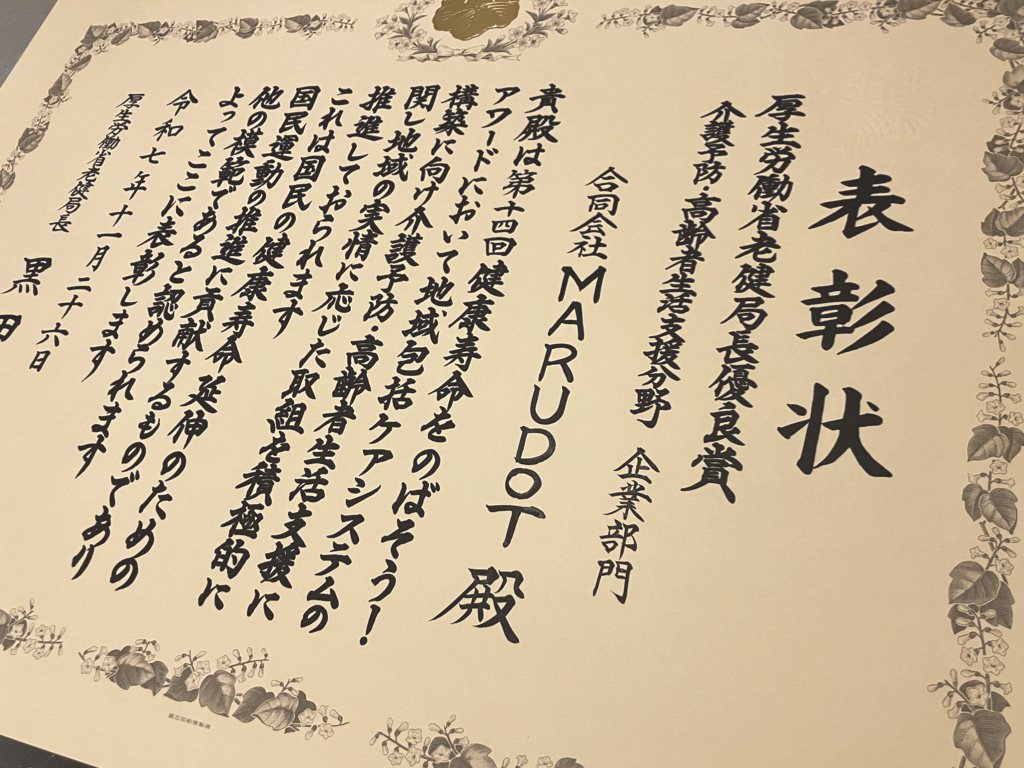 表彰状
厚生労働省老健局長優良賞
介護予防・高齢者生活支援分野 企業部門
合同会社MARUDOT殿
貴殿は第十四回健康寿命をのばそう!
アワードにおいて地域包括ケアシステムの
構築に向け介護予防・高齢者生活支援に
関し地域の実情に応じた取組を積極的に
推進しておられます
これは国民の健康寿命延伸のための
国民運動の推進に貢献するものであり
他の模範であると認められます
よってここに表彰します
令和七年十一月二十六日
厚生労働省老健局長 黒田
国立印刷局製造